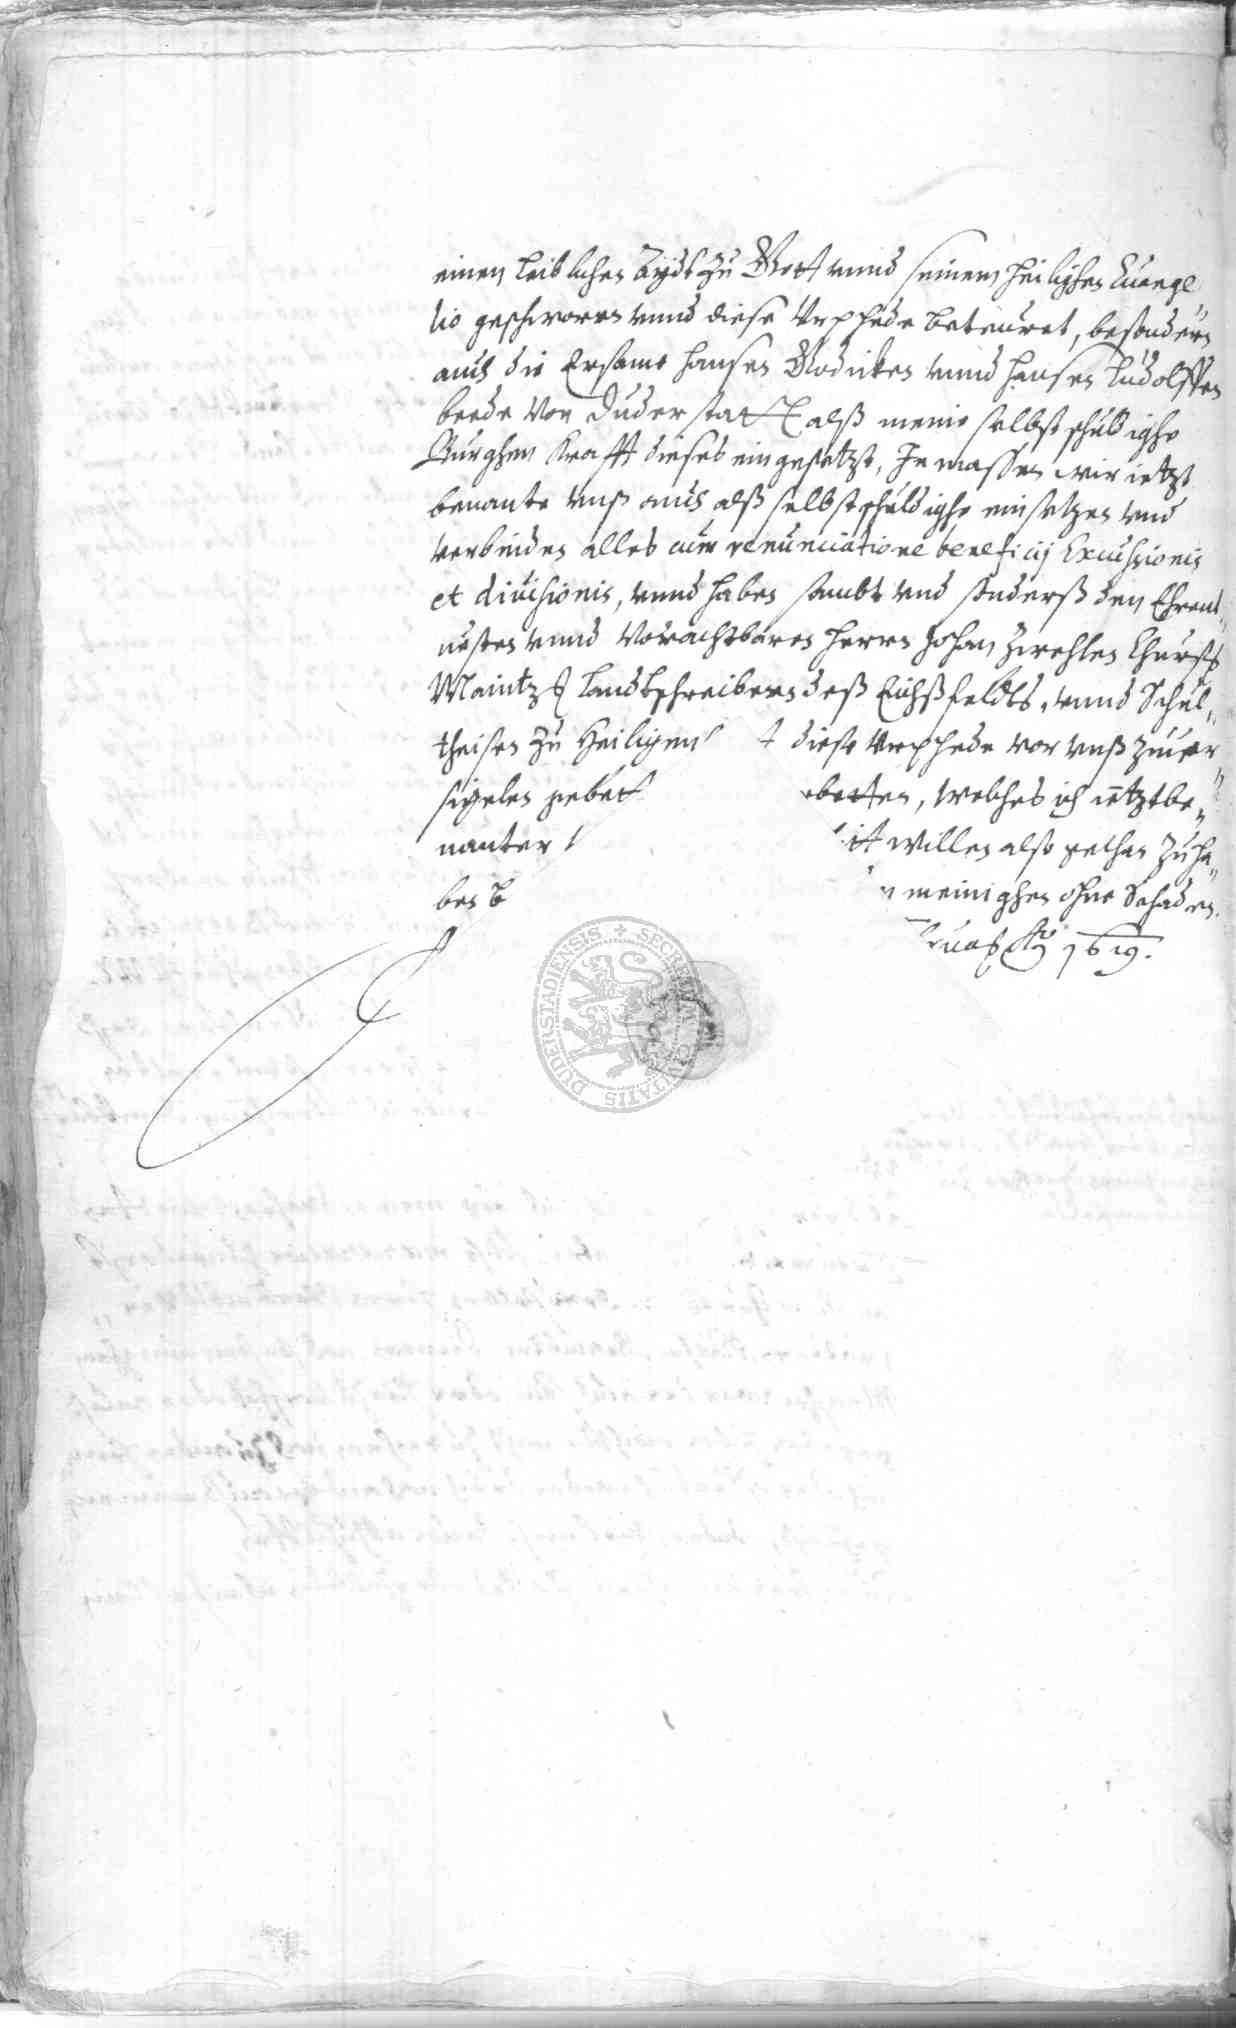 einen leiblichen Aydt zu Gott vnnd seinem heilighen Euange
lio geschworen vnnd diese Vrphede beteuret, besondern
auch die Ersame Hansen Godicken vnnd Hansen Ludolffen
beede von Duderstatt alß meine selbst schuldighe
Burghen Krafft dieses eingesetzt, Inmassen wir ietzt
benante vnß auch alß selbstschuldighe einsetzen vnd
verbinden alles cum renunciatione beneficij Excussionis
et diuisionis, vnnd haben sambt vnd sonderß den Ehrent„
uesten vnnd Vorachtbaren Herrn Johan Zwehlen Churf
Maintz Landtschreibern deß Eichßfeldts, vnnd Schul„
theisen zu Heiligen t diese Vrphede vor vnß zuuer„
sigelen gebet ebetten, welches ich ietztbe„
nanter itt willen also gethan zuha„
ben b n meinighen ohne Schaden.
1619.
SECRETUM CIVITATIS DUDERSTADIENSIS